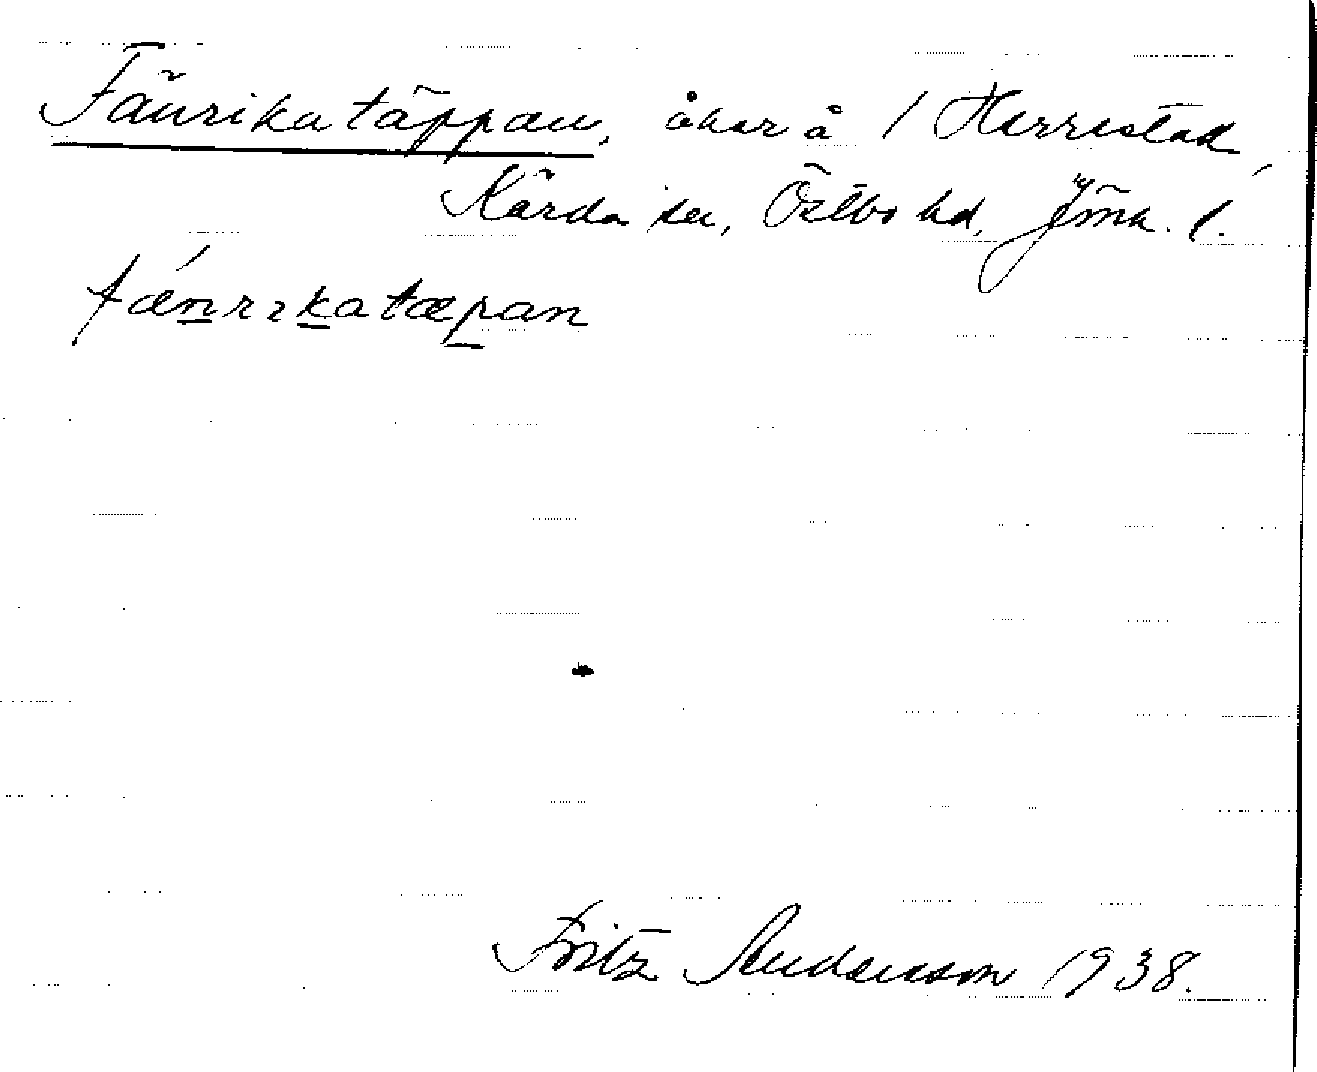 Fänrikatäppan, åker å 1 Herrestad,
Kärda sn, Östbo hd, Jönk. l.
fǽnrıkatæpan
Fritz Andersson 1938.